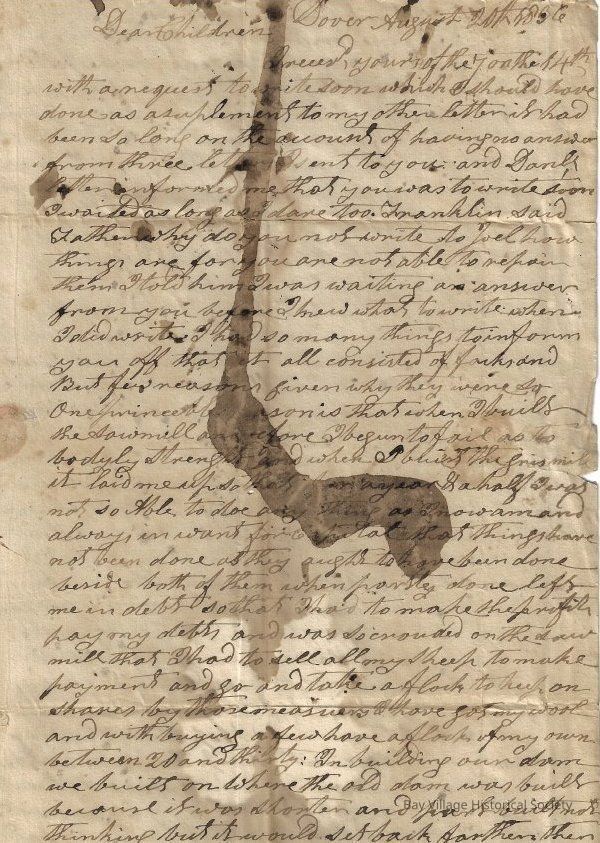 Dover August 20th 1836
Dear Children
I received yours of the 14th
with a request to write soon which I should have
done as a suplement to my other letter it had
been so long on the account of having no answer
from three letters I sent to you and Danl,s
letter informed me that you was to write soon
I waited as long as I dare too. Franklin said
Father why do you not write to Joel how
things are for you are not able to repair
them I told him I was waiting an answer
from you before I knew what to write when
I did write I had so many things to inform
you off that it all consisted of facks and
But few reasons given why they were so
One principle reason is that when I built
the sawmill before I begun to fail as to
bodyly strength and when I built the grismill
it laid me up so that for a year & a half I was
not so Able to doe any thing as I now am and
always in want for that things have
not been done as they aught to have been done
beside both of them when partly done left
me in debt so that I had to make the profits
pay my debts and was so crouded on the saw
mill that I had to sell all my sheep to make
payment and go and take a flock to keep on
shares by those measures I have got my wool
and with buying a few have a flock of my own
between 20 and thirty: In building our dam
we built on where the old dam was built
because it was shorter and just built not
thinking but it would set back farther then
Bay Village Historical Society